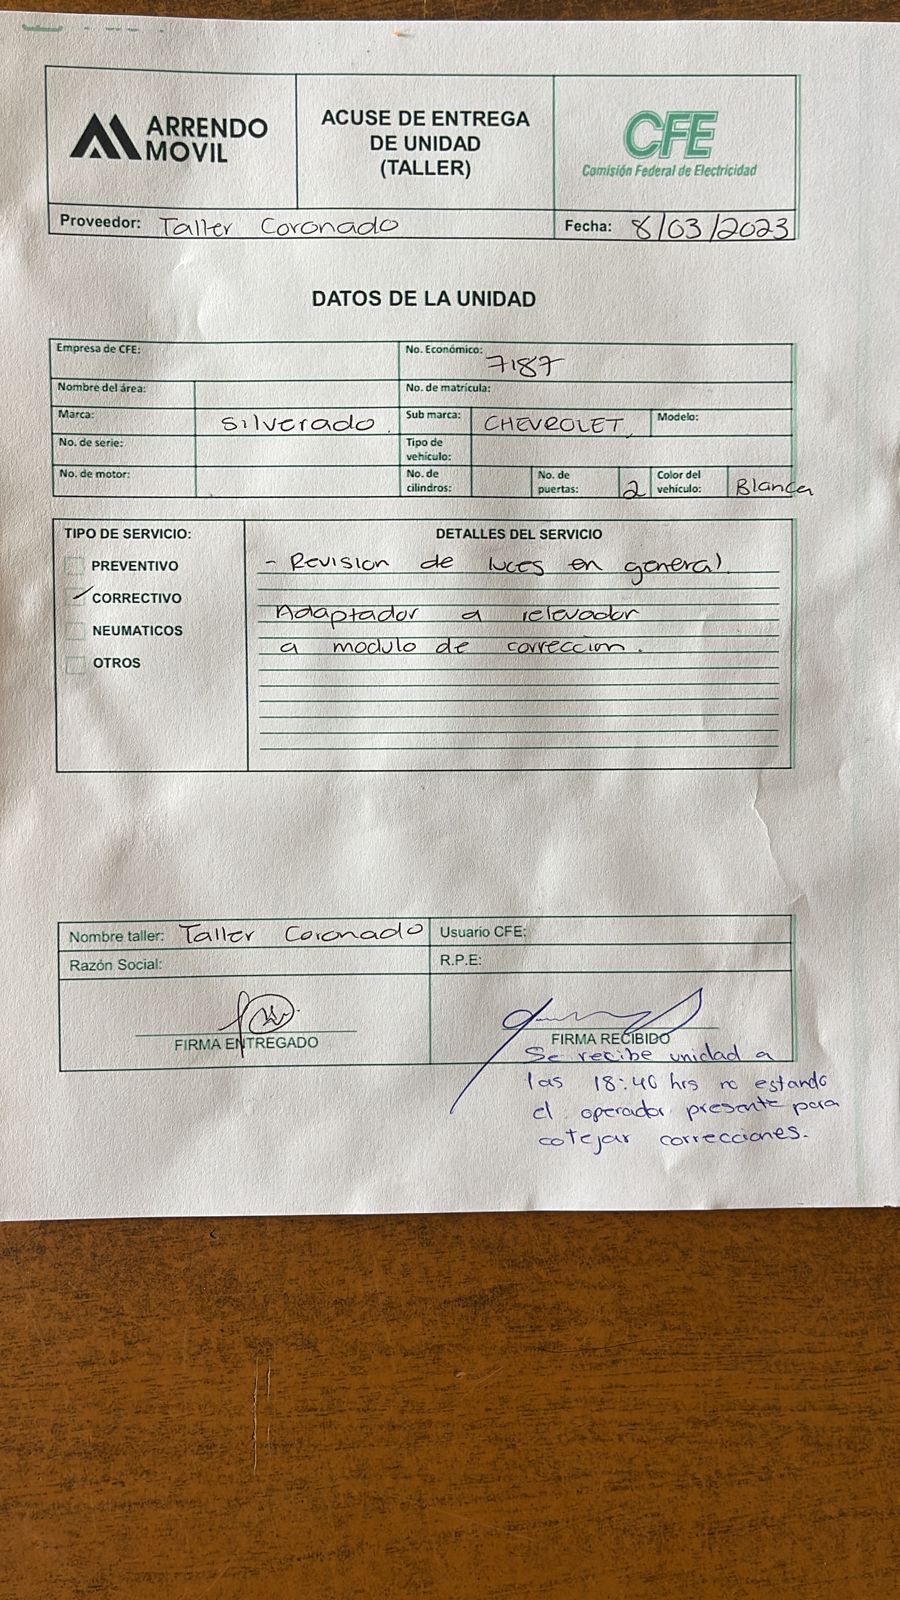 ARRENDO
MOVIL
ACUSE DE ENTREGA
DE UNIDAD
(TALLER)
CFE
Comisión Federal de Electricidad
Proveedor: Taller Coronado
Fecha: 8/03/2023
DATOS DE LA UNIDAD
Empresa de CFE:
No. Económico: 7187
Nombre del área:
No. de matrícula:
Marca: Silverado
Sub marca: CHEVROLET
Modelo:
No. de serie:
Tipo de
vehículo:
No. de motor:
No. de
cilindros:
No. de
puertas: 2
Color del
vehículo: Blanca
TIPO DE SERVICIO:
PREVENTIVO
CORRECTIVO
NEUMATICOS
OTROS
DETALLES DEL SERVICIO
- Revision de luces en general.
Adaptador a relevador
a modulo de correccion.
Nombre taller: Taller Coronado
Usuario CFE:
Razón Social:
R.P.E:
FIRMA ENTREGADO
FIRMA RECIBIDO
Se recibe unidad a
las 18:40 hrs no estando
el operador presente para
cotejar correcciones.